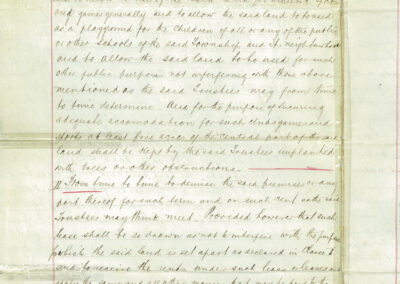 and games generally and to allow the said land to be used
as a playground for the Children of all or any of the public
or other Schools of the said Township and its neighbourhood
and to allow the said land to be used for such
other public purposes not interfering with those above
mentioned as the said Trustees may from time
to time determine. And for the purpose of securing
adequate accomodation for such and games and
sports at least five acres of the central part of the said
land shall be kept by the said Trustees unplanted
with trees or other obstructions.
II From time to time to demise the said premises or any
part thereof for such term and on such rent as the said
Trustees may think meet. Provided however that such
lease shall be so drawn as not to interfere with the purpose
for which the said land is set apart as declared in Clause 1
and to receive the rents under such lease or leases and